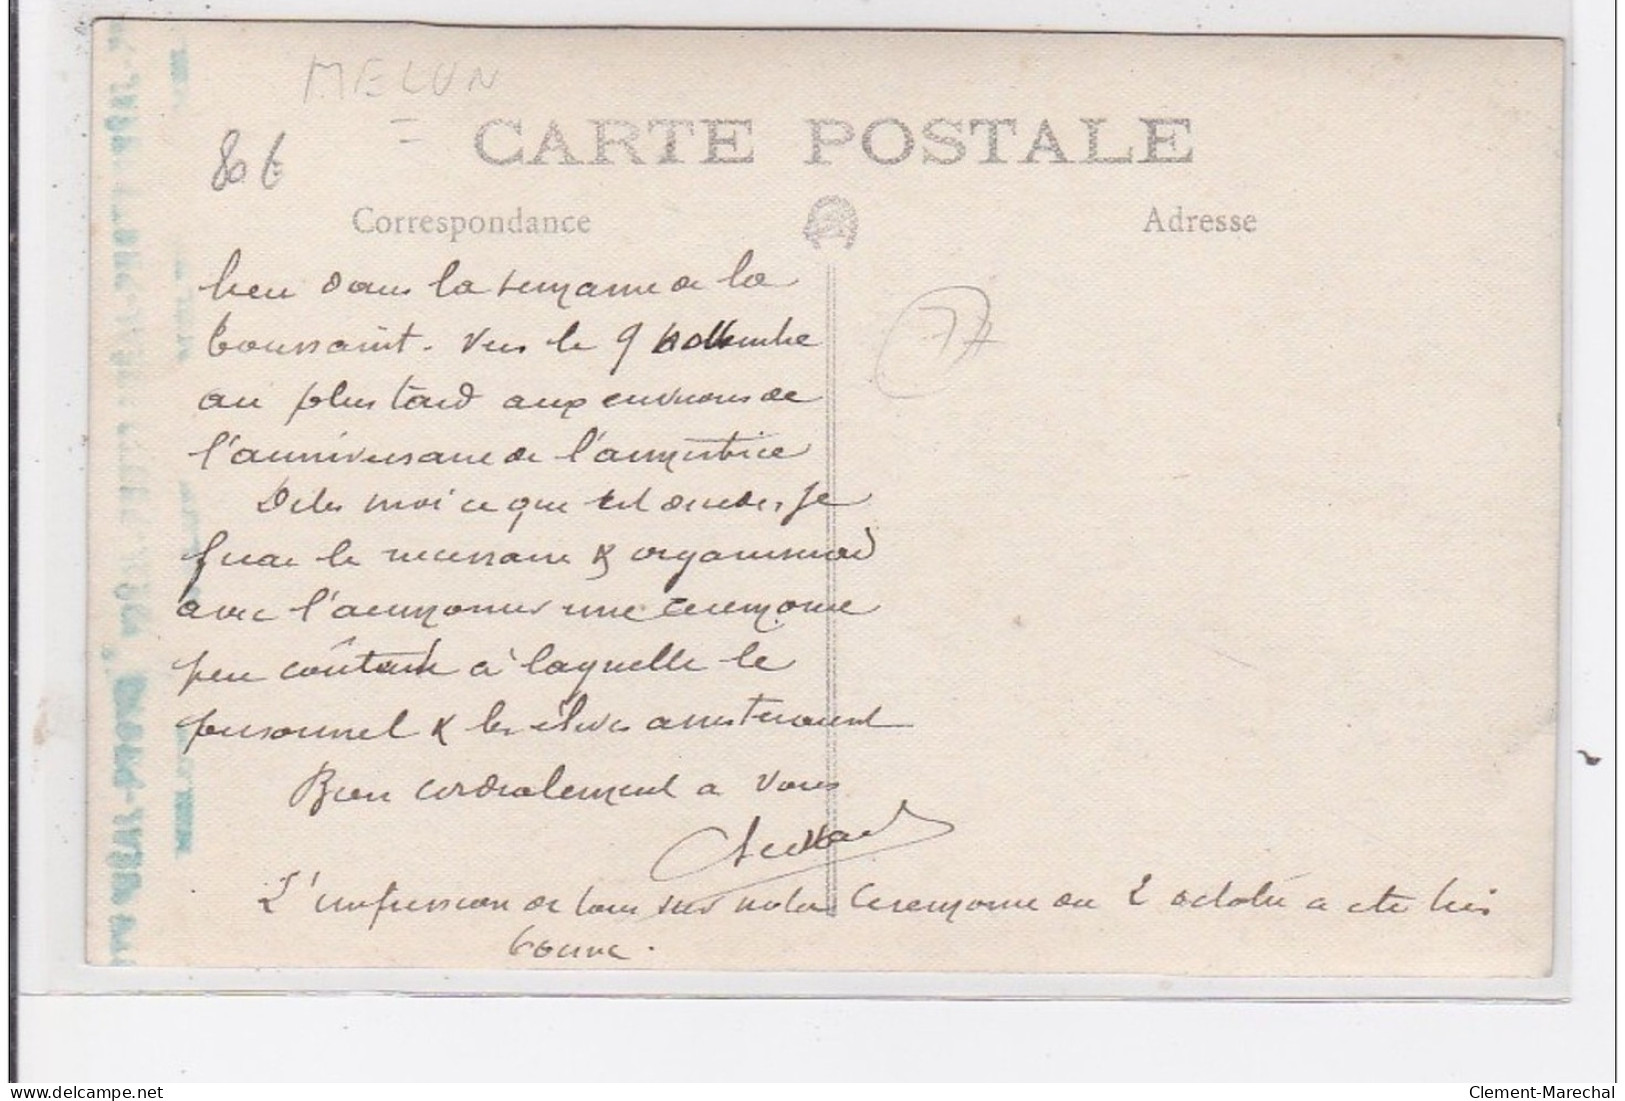 MELUN
80 €
CARTE POSTALE
Correspondance
Adresse
77
lieu dans la semaine de la
Toussaint. Vers le 9 Novembre
au plus tard aux environs de
l'anniversaire de l'armistice
Dites moi ce que est decide, je
ferai le necessaire & organiserai
avec l'aumonier une ceremonie
peu coûteuse à laquelle le
personnel & les élèves assisteraient
Bien cordialement a vous
L'impression de tous sur notre Ceremonie du 2 octobre a ete tres
bonne.
delcampe.net
Clement-Marechal